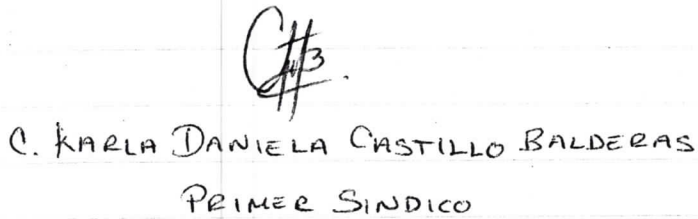 C. KARLA DANIELA CASTILLO BALDERAS
PRIMER SINDICO